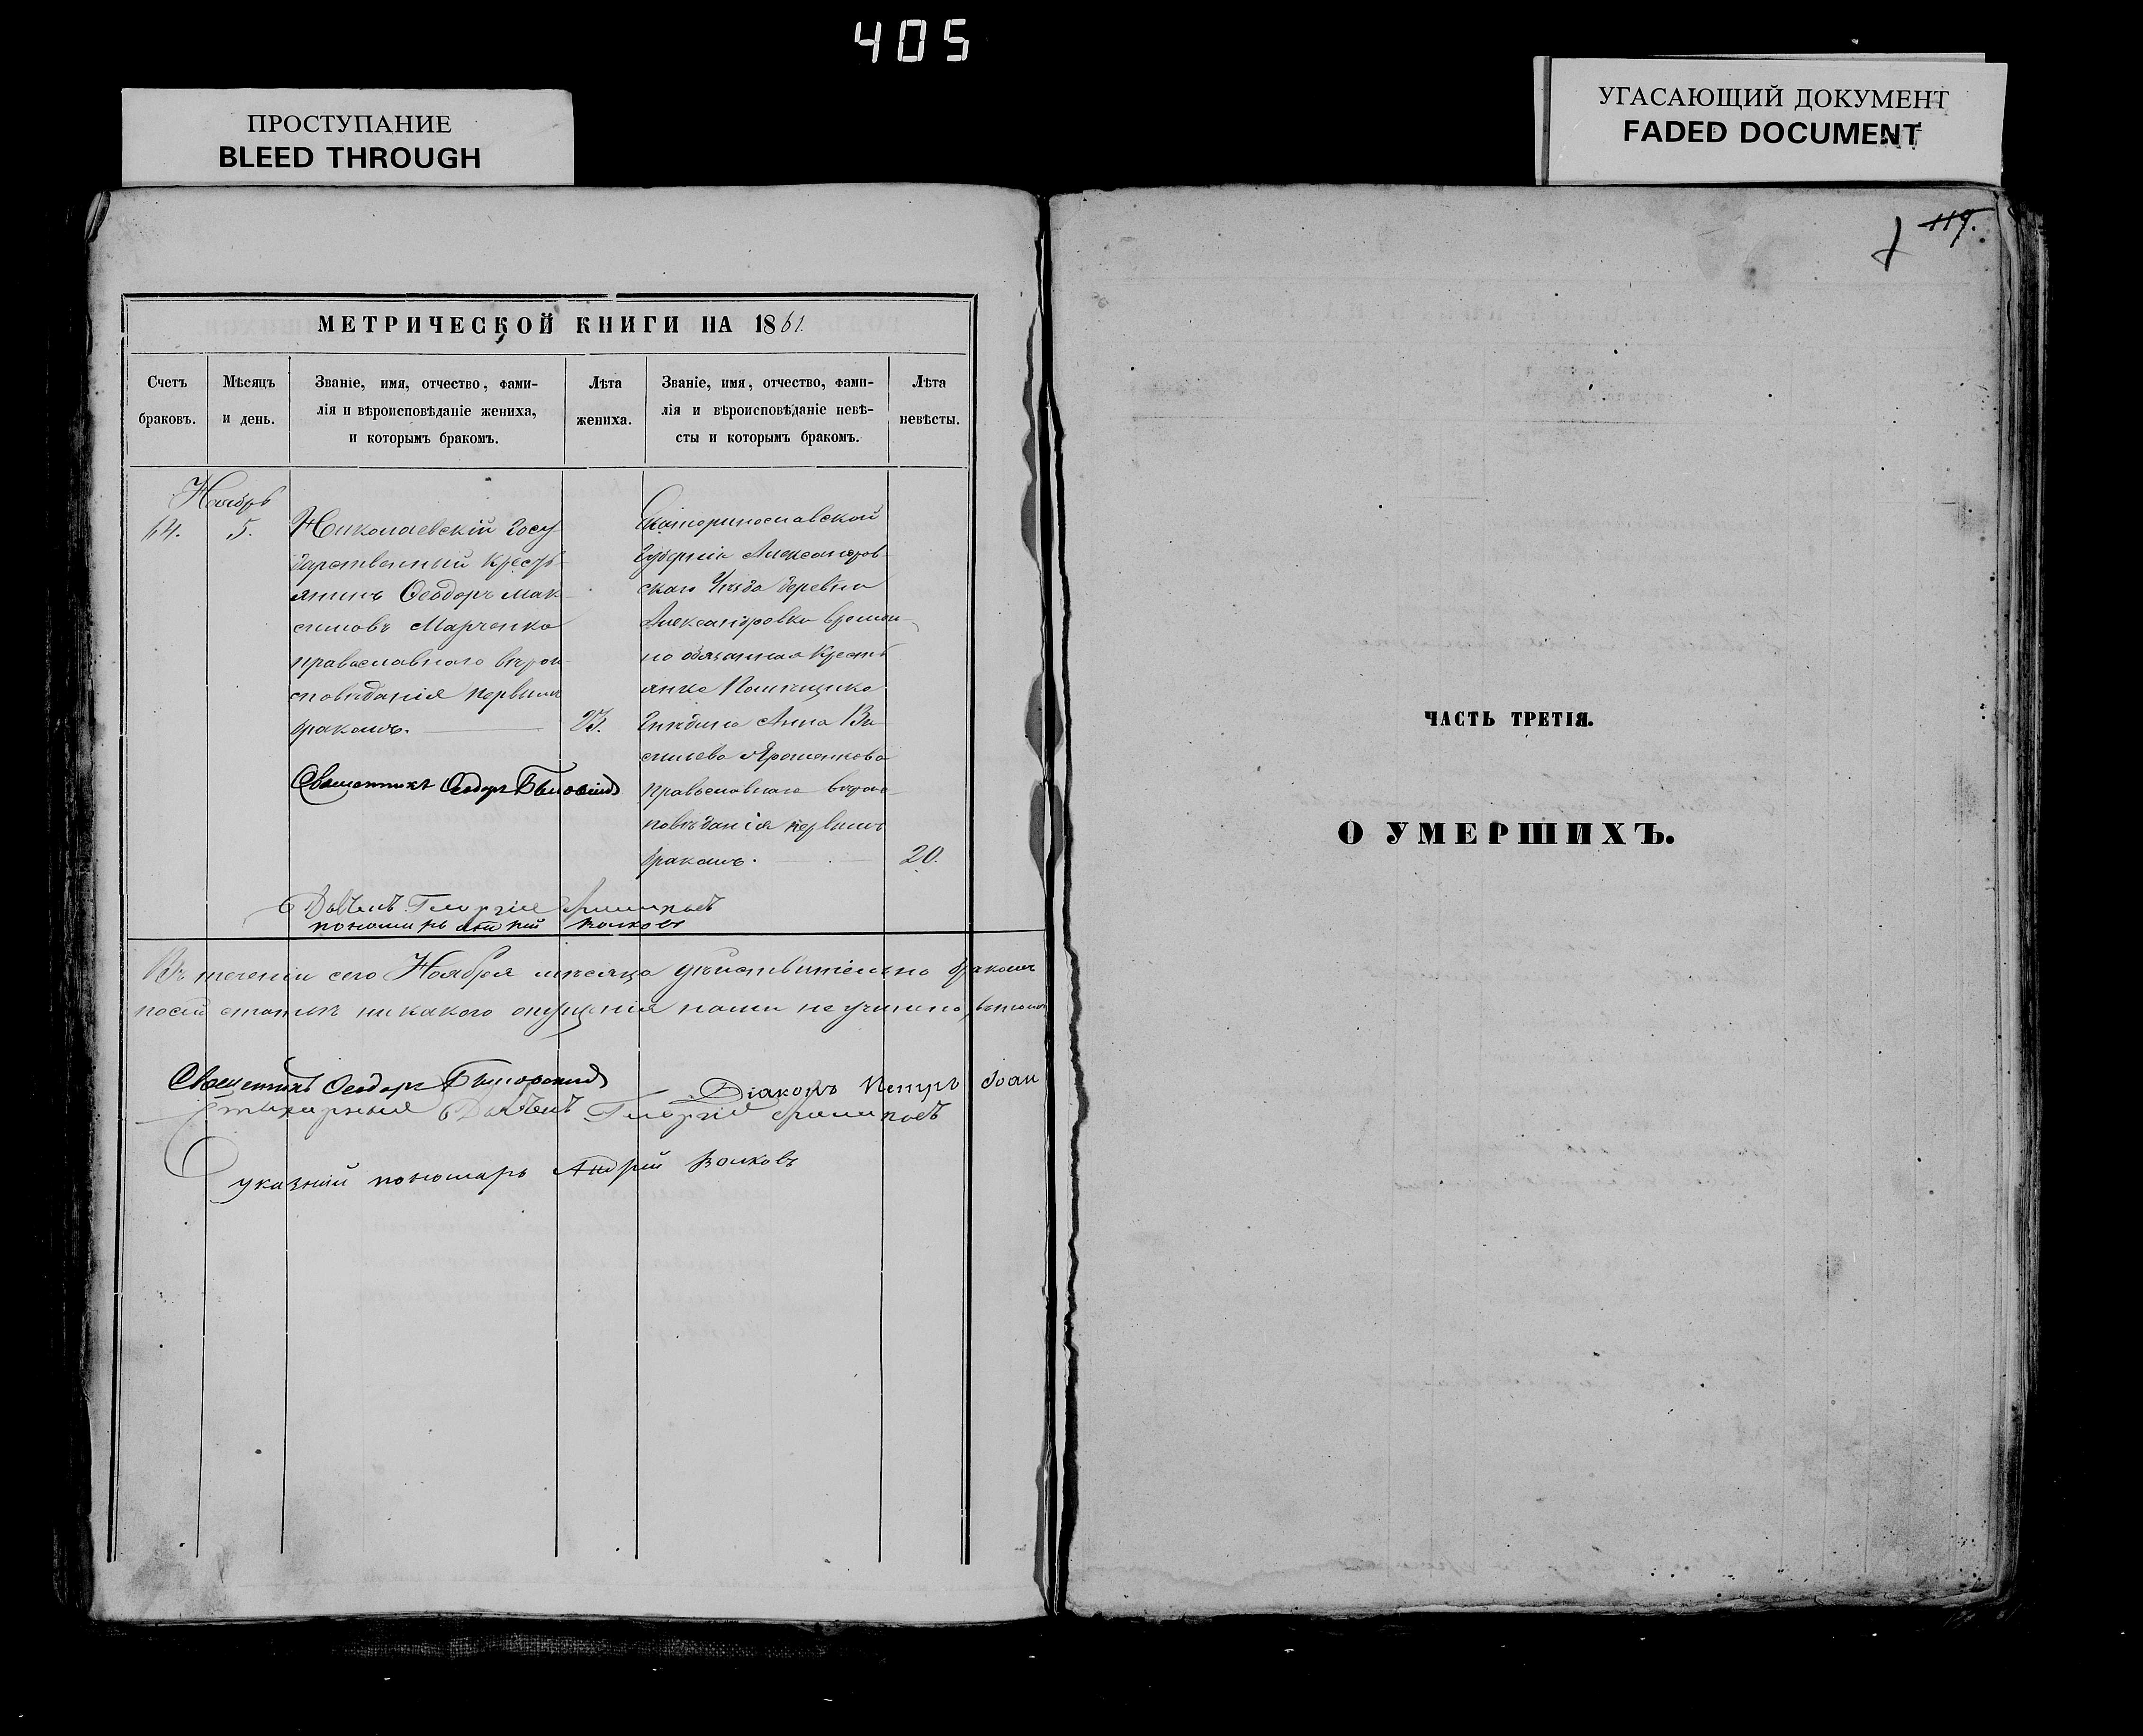 405
ПРОСТУПАНИЕ
BLEED THROUGH
УГАСАЮЩИЙ ДОКУМЕНТ
FADED DOCUMENT
МЕТРИЧЕСКОЙ КНИГИ НА 1861.
Счетъ браковъ.
Мѣсяцъ и день.
Званіе, имя, отчество, фами-
лія и вѣроисповѣданіе жениха,
и которымъ бракомъ.
Лѣта жениха.
Званіе, имя, отчество, фами-
лія и вѣроисповѣданіе невѣ-
сты и которымъ бракомъ.
Лѣта невѣсты.
Ноябрь
64. 5.
Николаевскій Госу
дарственный Кресть
янинъ Ѳеодоръ Мак
симовъ Марченко
православнаго вѣрои
сповѣданія первымъ
бракомъ.
23.
Священникъ Ѳеодоръ
Екатеринославской
Губерніи Александров
скаго Уѣзда деревни
Александровки времен
но обязанная Кресть
янка Помѣщика
Гнѣдина Анна Ва
сильева Ярошенкова
православнаго вѣроис
повѣданія первымъ
бракомъ.
20.
Дьячекъ Георгій
пономарь Андрій Волковъ
Въ теченіи сего Ноября мѣсяца дѣйствительно бракомъ
никакого опущенія нами не учинено, въ томъ
Священникъ Ѳеодоръ
Діаконъ Петръ Іоан
Стихарный Дьячекъ Георгій
указний пономарь Андрій Волковъ
119.
ЧАСТЬ ТРЕТІЯ.
О УМЕРШИХЪ.